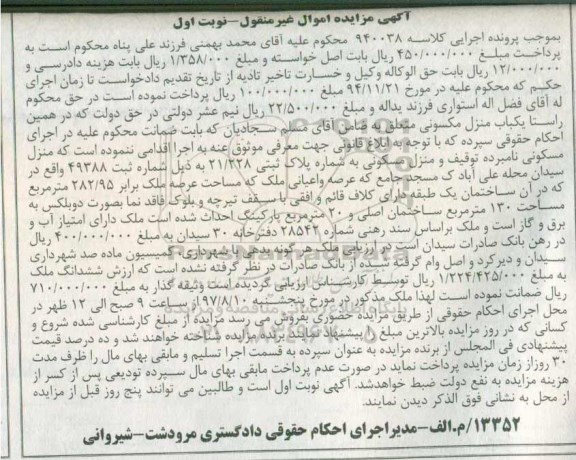 آگهی مزایده اموال غیرمنقول-نوبت اول
بموجب پرونده اجرایی کلاسه ۹۴۰۰۳۸ محکوم علیه آقای محمد بهمنی فرزند علی پناه محکوم است به
پرداخت مبلغ ۴۵۰/۰۰۰/۰۰۰ ریال بابت اصل خواسته و مبلغ ۱/۳۵۸/۰۰۰ ریال بابت هزینه دادرسی و
۱۲/۰۰۰/۰۰۰ ریال بابت حق الوکاله وکیل و خسارت تاخیر تادیه از تاریخ تقدیم دادخواست تا زمان اجرای
حکم که محکوم علیه در مورخ ۹۴/۱۱/۲۱ مبلغ ۱۰۰/۰۰۰/۰۰۰ ریال پرداخت نموده است در حق محکوم
له آقای فضل اله استواری فرزند یداله و مبلغ ۲۲/۵۰۰/۰۰۰ ریال نیم عشر دولتی در حق دولت که در همین
راستا یکباب منزل مکسونی متعلق به ضامن آقای مسلم سجادیان که بابت ضمانت محکوم علیه در اجرای
احکام حقوقی سپرده که با توجه به ابلاغ قانونی جهت معرفی موثوق عنه به اجرا اقدامی ننموده است که منزل
مسکونی نامبرده توقیف و منزل مسکونی به شماره پلاک ثبتی ۲۱/۲۲۸ به ذیل شماره ثبت ۴۹۳۸۸ واقع در
سیدان محله علی آباد ک مسجد جامع که عرصه واعیانی ملک که مساحت عرصه ملک برابر ۲۸۲/۹۵ مترمربع
که در آن ساختمان یک طبقه دارای کلاف قائم و افقی با سقف تیرچه و بلوک فاقد نما بصورت دوبلکس به
مساحت ۱۳۰ مترمربع ساختمان اصلی و ۲۰ مترمربع پارکینگ احداث شده است ملک دارای امتیاز آب و
برق و گاز است و ملک براساس سند رهنی شماره ۲۸۵۴۲ دفترخانه ۳۰ سیدان به مبلغ ۴۰۰/۰۰۰/۰۰۰ ریال
در رهن بانک صادرات سیدان است در ارزیابی ملک هر گونه بدهی با شهرداری کمیسیون ماده صد شهرداری
سیدان و دیرکرد و اصل وام گرفته شده از بانک صادرات در نظر گرفته نشده است که ارزش ششدانگ ملک
به مبلغ ۱/۲۲۴/۴۲۵/۰۰۰ ریال توسط کارشناس ارزیابی گردیده است وثیقه گذار به مبلغ ۷۱۰/۰۰۰/۰۰۰
ریال ضمانت نموده است لهذا ملک مذکور در مورخ پنجشنبه ۹۷/۸/۱۰ از ساعت ۹ صبح الی ۱۲ ظهر در
محل اجرای احکام حقوقی از طریق مزایده حضوری بفروش می رسد مزایده از مبلغ کارشناسی شده شروع و
کسانی که در روز مزایده بالاترین مبلغ را پیشنهاد نمایند برنده مزایده شناخته خواهند شد و ده درصد قیمت
پیشنهادی فی المجلس از برنده مزایده به عنوان سپرده به قسمت اجرا تسلیم و مابقی بهای مال را ظرف مدت
۳۰ روزاز زمان مزایده پرداخت نماید در صورت عدم پرداخت مابقی بهای مال سپرده تودیعی پس از کسر از
هزینه مزایده به نفع دولت ضبط خواهدشد. آگهی نوبت اول است و طالبین می توانند پنج روز قبل از مزایده
از محل به نشانی فوق الذکر دیدن نمایند.
۱۳۳۵۲/م.الف-مدیراجرای احکام حقوقی دادگستری مرودشت-شیروانی